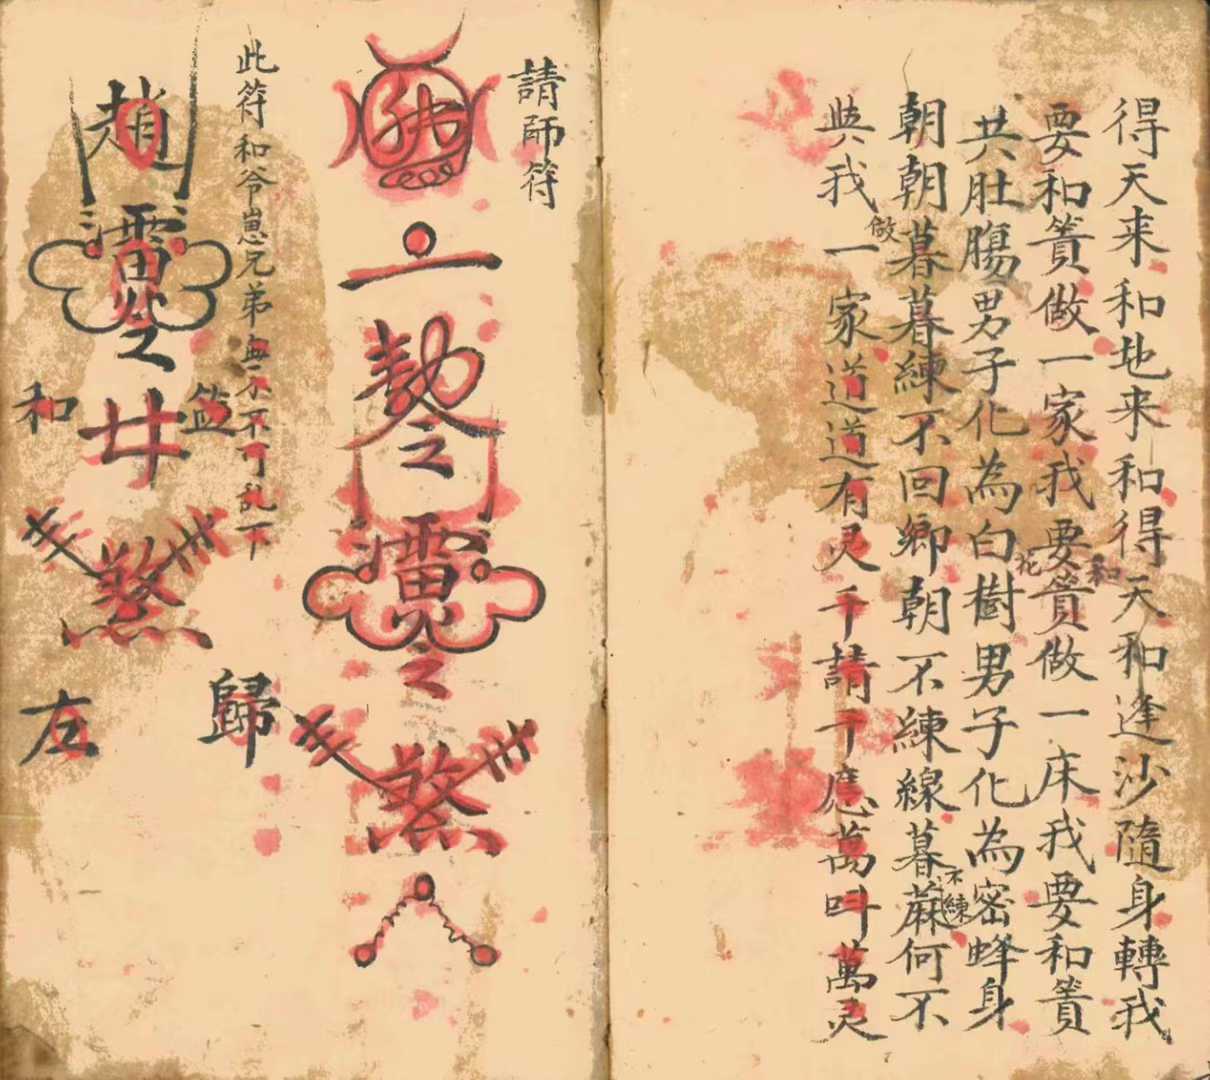 得天来和地来和得天和逢沙隨身轉我
要和簀做一家我要簀做一床我要和簀
和
共肚腸男子化為白樹男子化為密蜂身
花
朝朝暮暮練不回鄉朝不練線暮蔴何不
不練
與我一家道道有灵千請千應萬叫萬灵
做
請師符
勅
之
煞
此符和爷崽兄弟無不不可乱下
趙
煞
和
歸
左